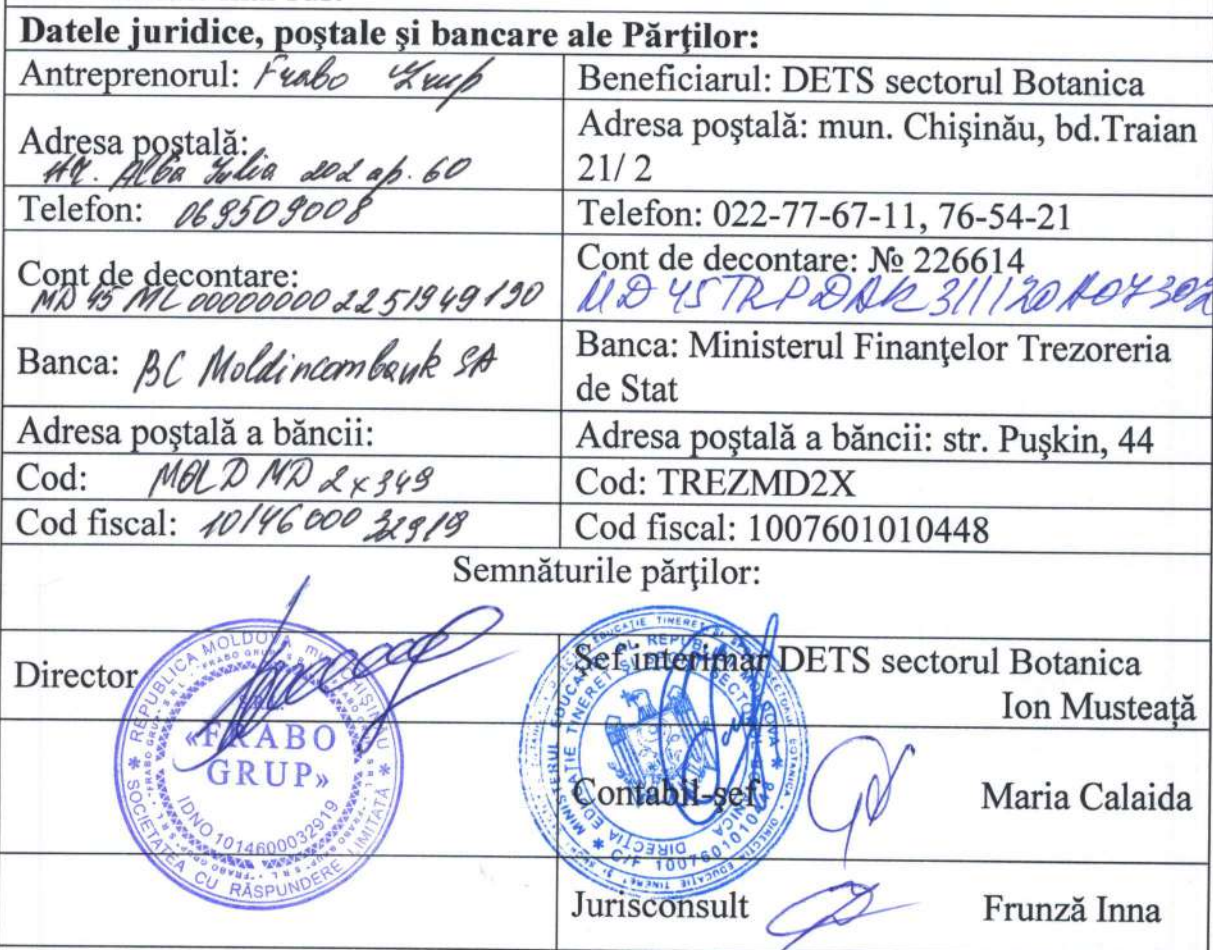 Datele juridice, poştale şi bancare ale Părţilor:
Antreprenorul: Frabo Grup
Beneficiarul: DETS sectorul Botanica
Adresa poştală:
Alba Iulia 202 ap. 60
Adresa poştală: mun. Chişinău, bd.Traian
21/ 2
Telefon: 069509008
Telefon: 022-77-67-11, 76-54-21
Cont de decontare:
MD 45 ML 000000002251949190
Cont de decontare: № 226614
MD 45 TRPDAK311120A07302
Banca: BC Moldincombank SA
Banca: Ministerul Finanţelor Trezoreria
de Stat
Adresa poştală a băncii:
Adresa poştală a băncii: str. Puşkin, 44
Cod: MOLD MD 2x349
Cod: TREZMD2X
Cod fiscal: 1014600032919
Cod fiscal: 1007601010448
Semnăturile părţilor:
Director
Şef interimar DETS sectorul Botanica
Ion Musteaţă
REPUBLICA MOLDOVA * mun. CHIŞINĂU *
SOCIETATEA CU RĂSPUNDERE LIMITATĂ
«FRABO
GRUP»
IDNO 1014600032919
Contabil-şef
Maria Calaida
Jurisconsult
Frunză Inna